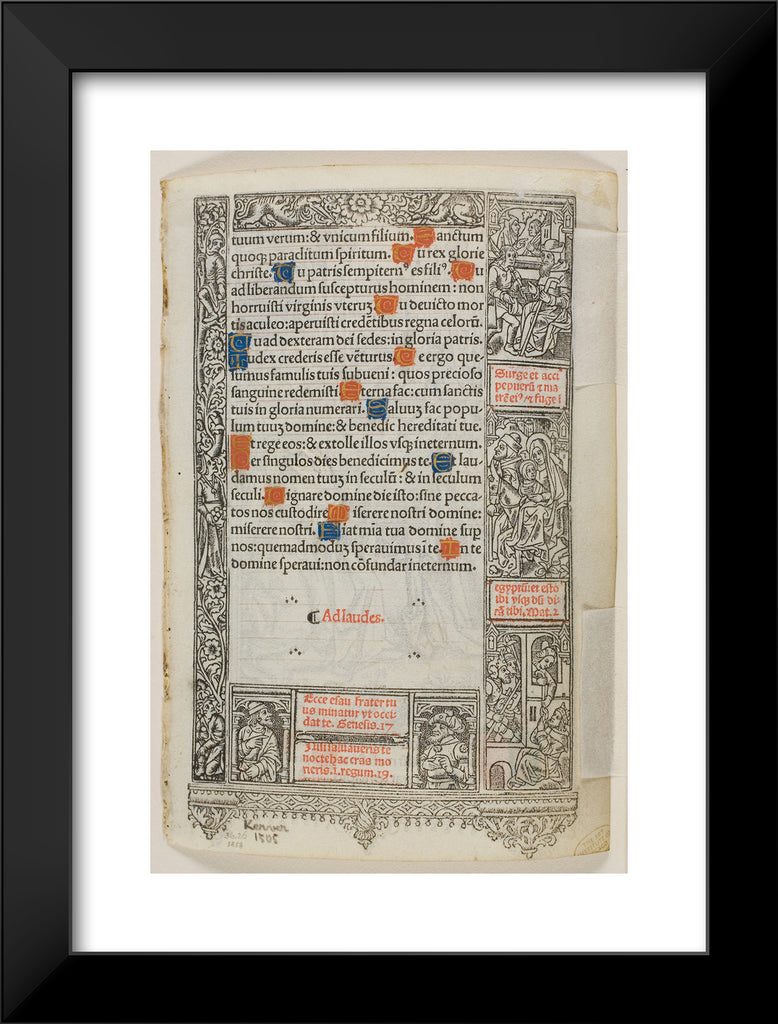 tuum verum: & vnicum filium. Sanctum
quoqꝫ paraditum spiritum. Tu rex glorie
christe. Tu patris sempiternꝰ es filiꝰ. Tu
ad liberandum suscepturus hominem: non
horruisti virginis vteruꝫ. Tu deuicto mor
tis aculeo: aperuisti credẽtibus regna celorũ.
Tu ad dexteram dei sedes: in gloria patris.
Iudex crederis esse vẽturus. Te ergo que-
sumus famulis tuis subueni: quos precioso
sanguine redemisti. Eterna fac: cum sanctis
tuis in gloria numerari. Saluuꝫ fac popu
lum tuuꝫ domine: & benedic hereditati tue.
Et rege eos: & extolle illos vsqꝫ ineternum.
Per singulos dies benedicimus te. Et lau
damus nomen tuuꝫ in seculũ: & in seculum
seculi. Dignare domine die isto: sine pecca-
to nos custodire. Miserere nostri domine:
miserere nostri. Fiat mĩa tua domine sup
nos: quemadmoduꝫ sperauimus i te. In te
domine speraui: non cõfundar ineternum.
¶ Ad laudes.
Surge et acci
pe puerũ ⁊ ma
trẽ eiꝰ ⁊ fuge i
egyptũ ⁊ esto
ibi vsqꝫ dũ di
cã tibi. Mat. 2
Ecce esau frater tu
us minatur vt occi
dat te. Genesis. 27
te
nocte hac cras mo
rieris. 1. regum. 19.
1505